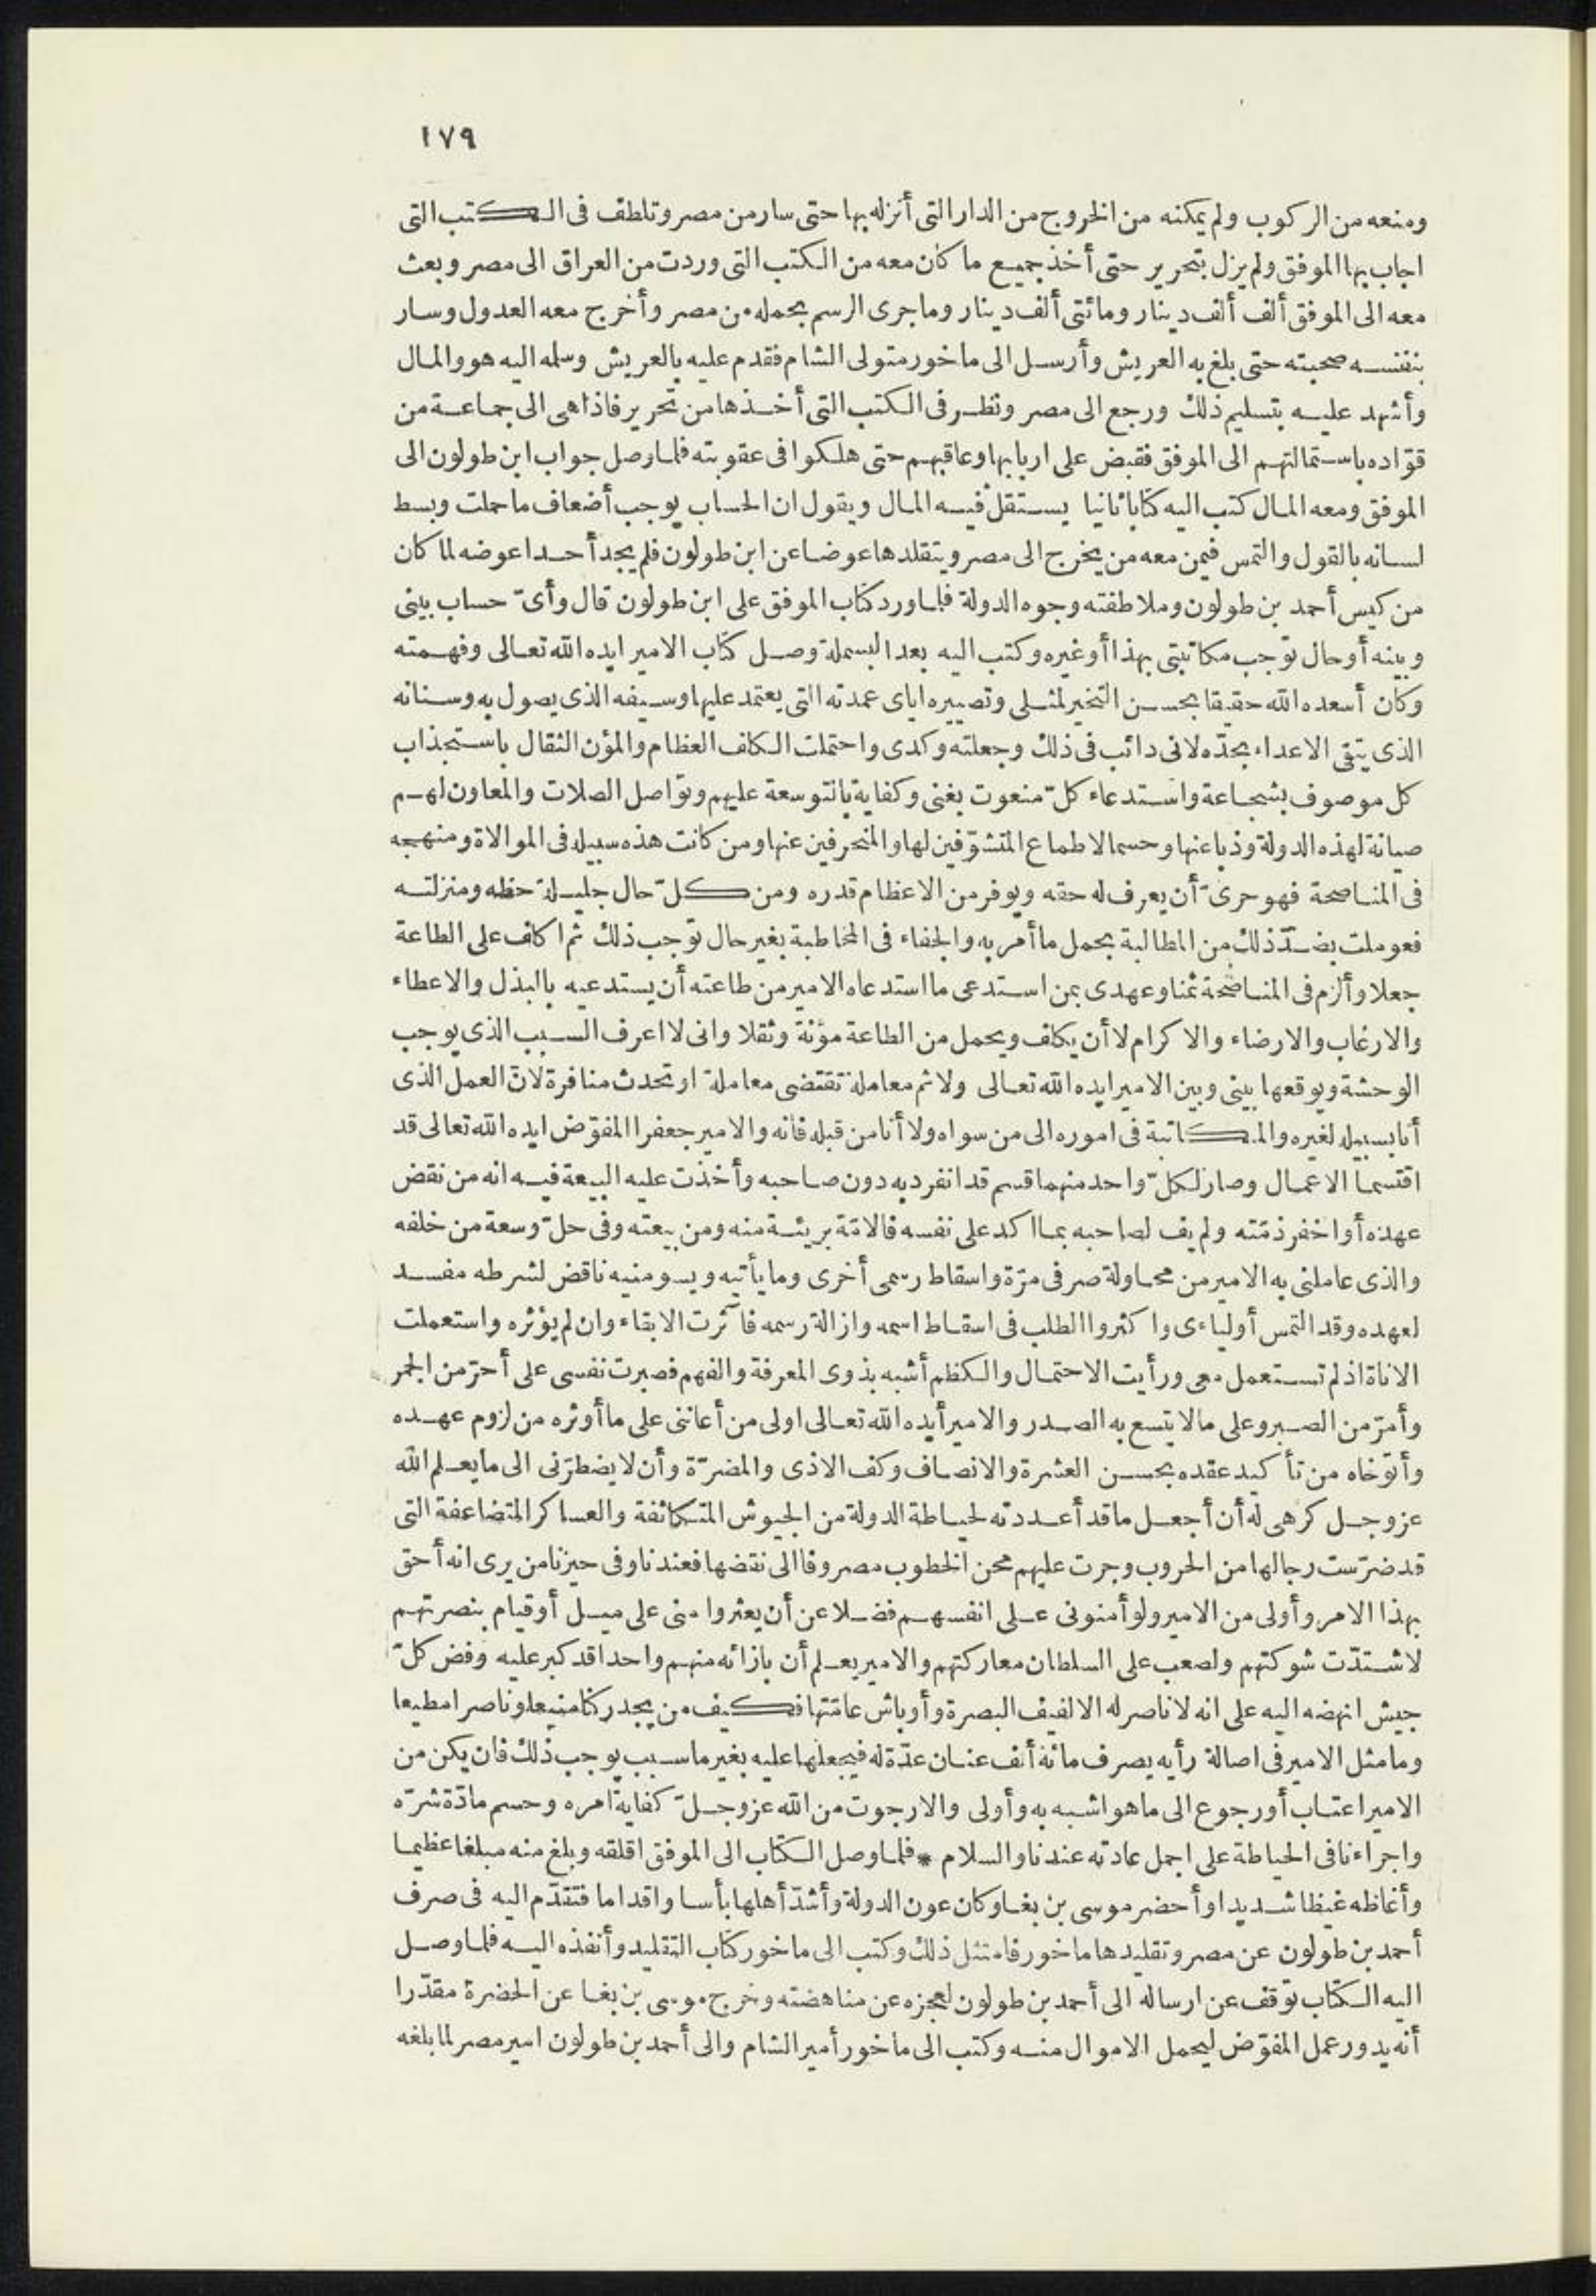 ١٧٩
ومنعه من الركوب ولم يمكنه من الخروج من الدار التى أنزله بها حتى سار من مصر وتلطف فى الكتب التى
اجاب بها الموفق ولم يزل بتحرير حتى أخذ جميع ما كان معه من الكتب التى وردت من العراق الى مصر وبعث
معه الى الموفق ألف ألف دينار ومائتى ألف دينار وما جرى الرسم بحمله من مصر وأخرج معه العدول وسار
بنفسه صحبته حتى بلغ به العريش وأرسل الى ماخور متولى الشام فقدم عليه بالعريش وسلمه اليه هو والمال
وأشهد عليه بتسليم ذلك ورجع الى مصر ونظر فى الكتب التى أخذها من تحرير فاذا هى الى جماعة من
قوّاده باستمالتهم الى الموفق فقبض على اربابها وعاقبهم حتى هلكوا فى عقوبته فلما وصل جواب ابن طولون الى
الموفق ومعه المال كتب اليه كتابا ثانيا يستقل فيه المال ويقول ان الحساب يوجب أضعاف ما حملت وبسط
لسانه بالقول والتمس فيمن معه من يخرج الى مصر ويتقلدها عوضا عن ابن طولون فلم يجد أحدا عوضه لما كان
من كيس أحمد بن طولون وملاطفته وجوه الدولة فلما ورد كتاب الموفق على ابن طولون قال وأىّ حساب بينى
وبينه أو حال توجب مكاتبتى بهذا أو غيره وكتب اليه بعد البسملة وصل كتاب الامير ايده الله تعالى وفهمته
وكان أسعده الله حقيقا بحسن التخير لمثلى وتصييره اياى عمدته التى يعتمد عليها وسيفه الذى يصول به وسنانه
الذى يتقى الاعداء بحدّه لانى دائب فى ذلك وجعلته وكدى واحتملت الكلف العظام والمؤن الثقال باستجذاب
كل موصوف بشجاعة واستدعاء كلّ منعوت بغنى وكفاية بالتوسعة عليهم وتواصل الصلات والمعاون لهم
صيانة لهذه الدولة وذبا عنها وحسما لاطماع المتشوّفين لها والمنحرفين عنها ومن كانت هذه سبيله فى الموالاة ومنهجه
فى المناصحة فهو حرىّ أن يعرف له حقه ويوفر من الاعظام قدره ومن كلّ حال جليلة حظه ومنزلته
فعوملت بضدّ ذلك من المطالبة بحمل ما أمر به والجفاء فى المخاطبة بغير حال توجب ذلك ثم اكلف على الطاعة
جعلا وألزم فى المناصحة ثمنا وعهدى بمن استدعى ما استدعاه الامير من طاعته أن يستدعيه بالبذل والاعطاء
والارغاب والارضاء والاكرام لا أن يكلف ويحمل من الطاعة مؤنة وثقلا وانى لا اعرف السبب الذى يوجب
الوحشة ويوقعها بينى وبين الامير ايده الله تعالى ولا ثم معاملة تقتضى معاملة او تحدث منافرة لانّ العمل الذى
أنا بسبيله لغيره والمكاتبة فى اموره الى من سواه ولا أنا من قبله فانه والامير جعفرا المفوّض ايده الله تعالى قد
اقتسما الاعمال وصار لكلّ واحد منهما قسم قد انفرد به دون صاحبه وأخذت عليه البيعة فيه انه من نقض
عهده أو اخفر ذمّته ولم يف لصاحبه بما اكد على نفسه فالامّة بريئة منه ومن بيعته وفى حلّ وسعة من خلفه
والذى عاملنى به الامير من محاولة صرفى مرّة واسقاط رسمى أخرى وما يأتيه ويسومنيه ناقض لشرطه مفسد
لعهده وقد التمس أولياءى واكثروا الطلب فى اسقاط اسمه وازالة رسمه فآثرت الابقاء وان لم يؤثره واستعملت
الاناة اذ لم تستعمل معى ورأيت الاحتمال والكظم أشبه بذوى المعرفة والفهم فصبرت نفسى على أحرّ من الجمر
وأمرّ من الصبر وعلى ما لا يتسع به الصدر والامير أيده الله تعالى اولى من أعاننى على ما أوثره من لزوم عهده
وأتوّخاه من تأكيد عقده بحسن العشرة والانصاف وكف الاذى والمضرّة وأن لا يضطرّنى الى ما يعلم الله
عز وجل كرهى له أن أجعل ما قد أعددته لحياطة الدولة من الجيوش المتكاثفة والعساكر المتضاعفة التى
قد ضرّست رجالها من الحروب وجرت عليهم محن الخطوب مصروفا الى نقضها فعندنا وفى حيزنا من يرى انه أحق
بهذا الامر وأولى من الامير ولو أمنونى على انفسهم فضلا عن أن يعثروا منى على ميل أو قيام بنصرتهم
لاشتدّت شوكتهم ولصعب على السلطان معاركتهم والامير يعلم أن بازائه منهم واحدا قد كبر عليه وفض كلّ
جيش انهضه اليه على انه لا ناصر له الا لفيف البصرة وأوباش عامّتها فكيف من يجد ركنا منيعا وناصرا مطيعا
وما مثل الامير فى اصالة رأيه يصرف مائة ألف عنان عدّة له فيجعلها عليه بغير ما سبب يوجب ذلك فان يكن من
الامير اعتاب أو رجوع الى ما هو اشبه به وأولى والا رجوت من الله عز وجلّ كفاية امره وحسم مادّة شرّه
واجراءنا فى الحياطة على اجمل عادته عندنا والسلام * فلما وصل الكتاب الى الموفق اقلقه وبلغ منه مبلغا عظيما
وأغاظه غيظا شديدا وأحضر موسى بن بغا وكان عون الدولة وأشدّ أهلها بأسا واقداما فتقدّم اليه فى صرف
أحمد بن طولون عن مصر وتقليدها ماخور فامتثل ذلك وكتب الى ماخور كتاب التقليد وأنفذه اليه فلما وصل
اليه الكتاب توقف عن ارساله الى أحمد بن طولون لعجزه عن مناهضته وخرج موسى بن بغا عن الحضرة مقدّرا
أنه يدور عمل المفوّض ليحمل الاموال منه وكتب الى ماخور أمير الشام والى أحمد بن طولون امير مصر لما بلغه